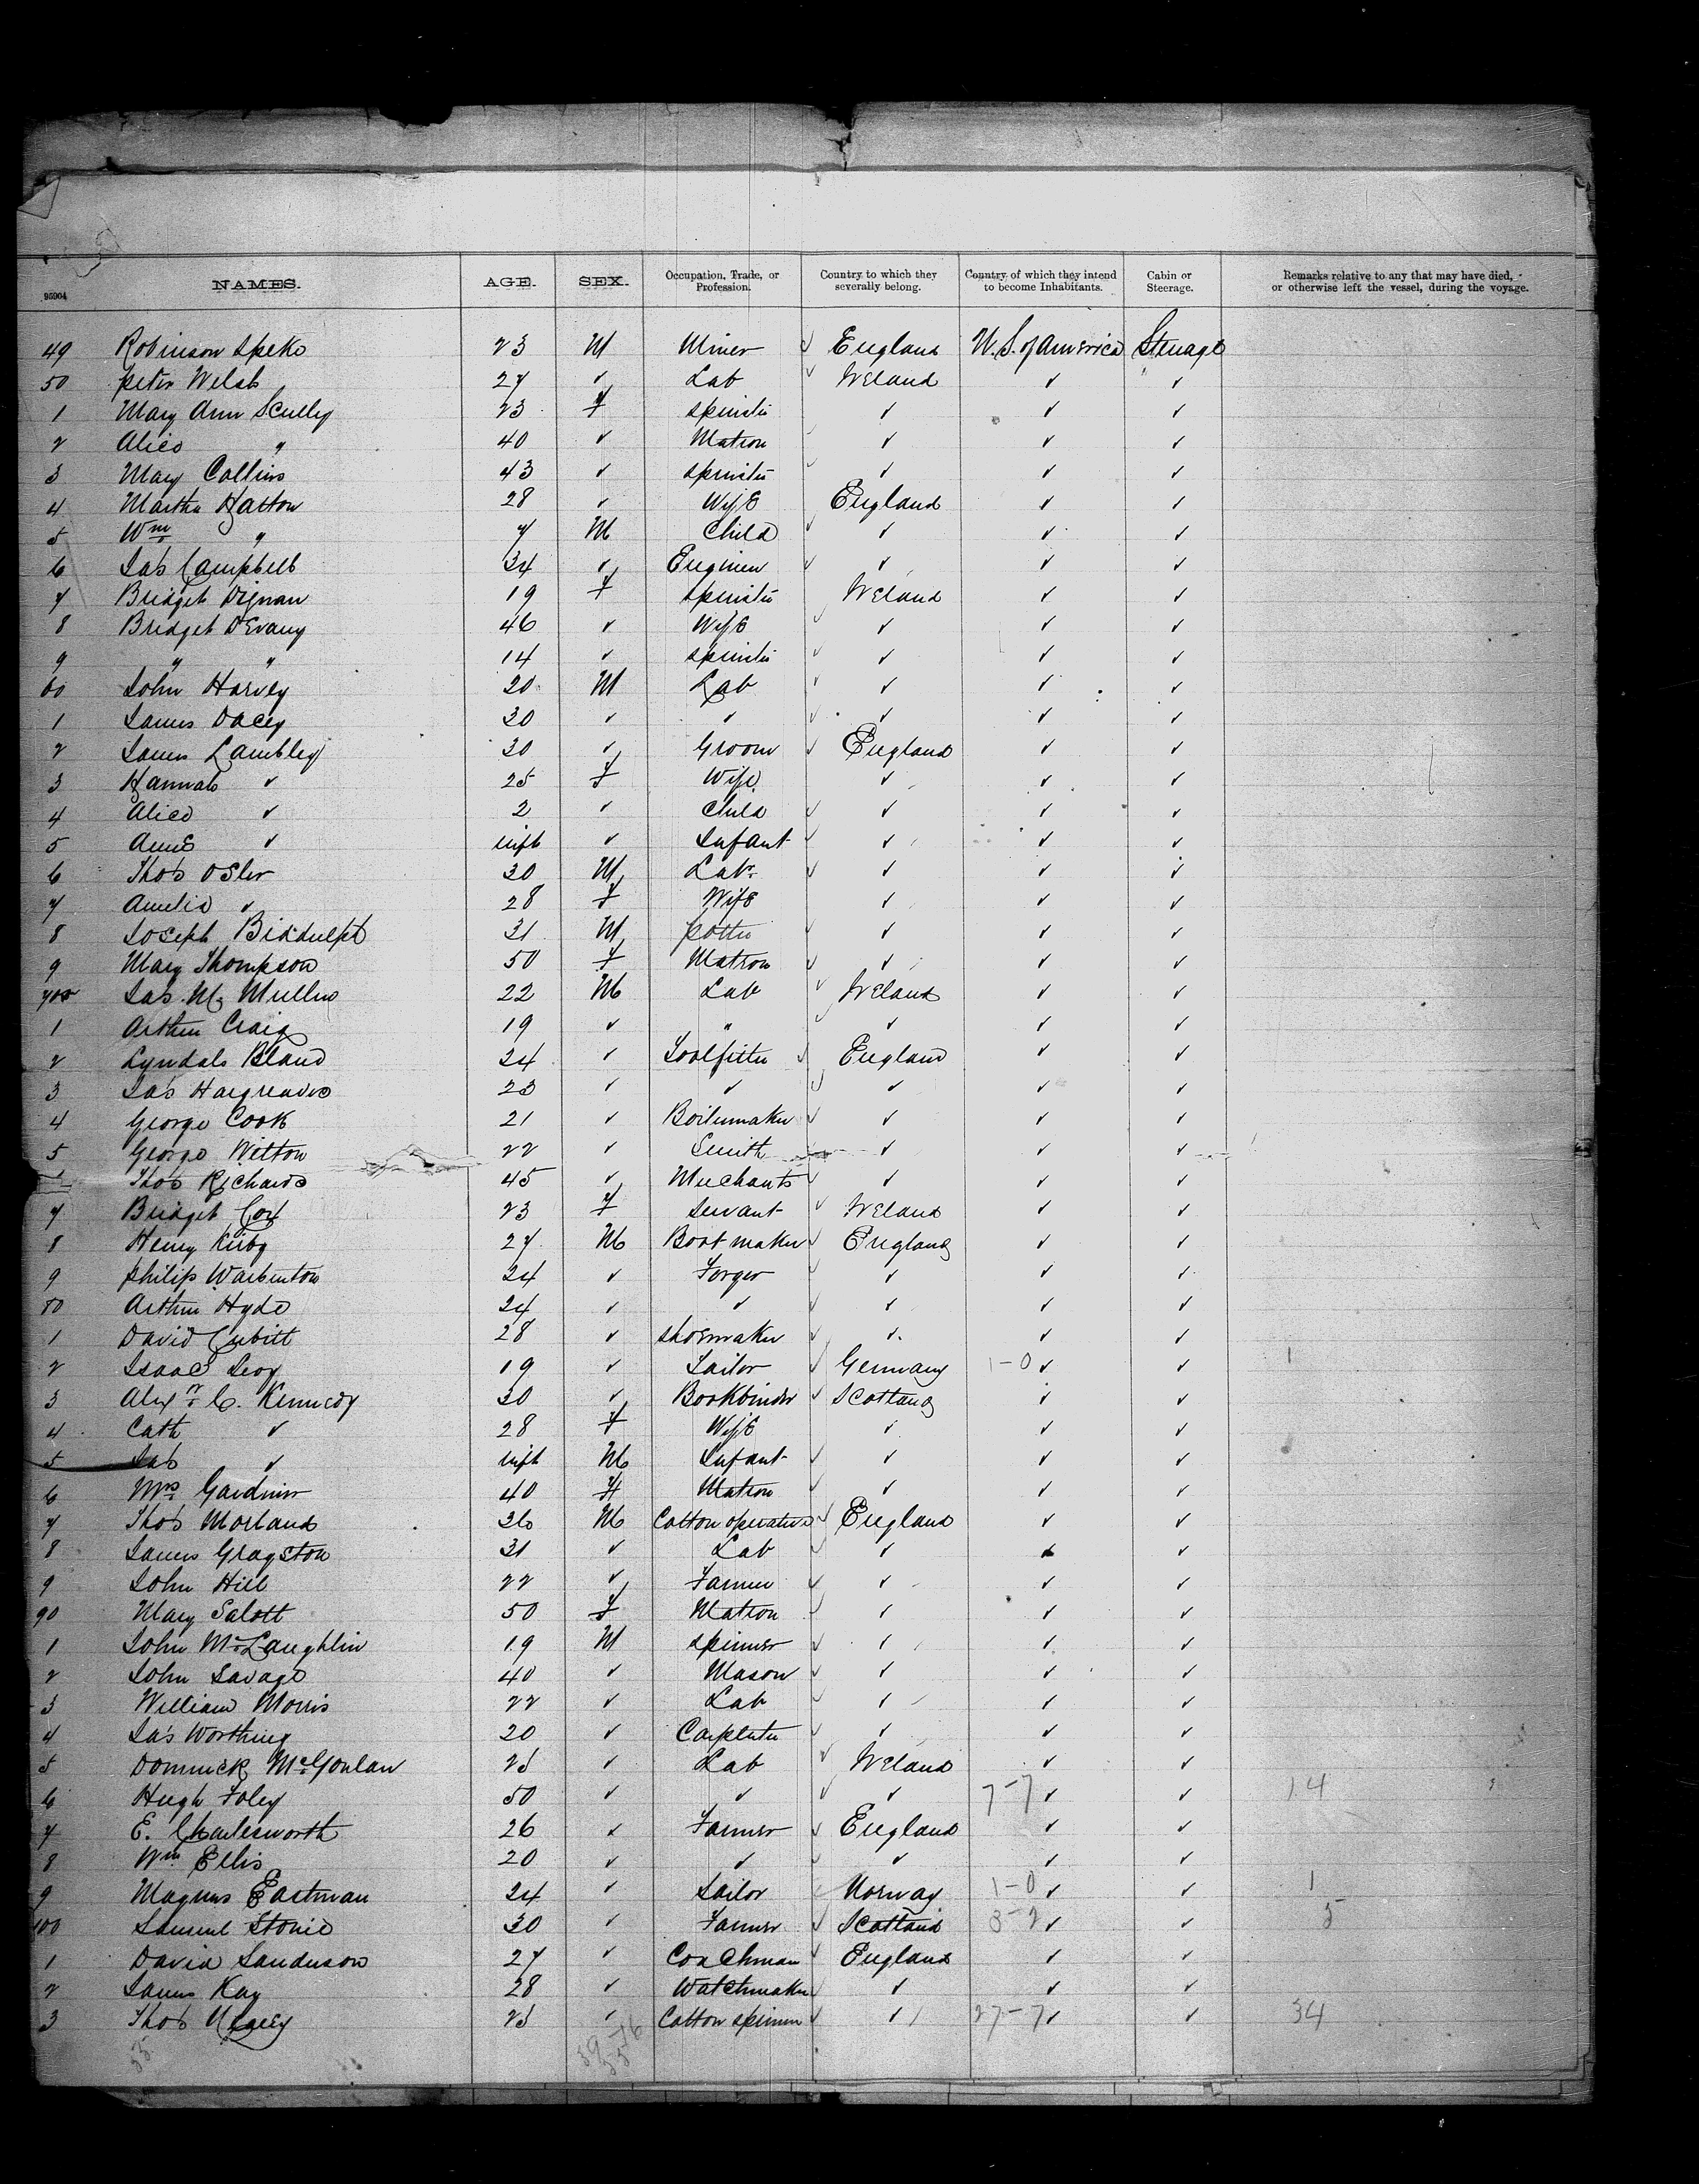 NAMES. AGE. SEX. Occupation, Trade, or Profession. Country to which they severally belong. Country of which they intend to become Inhabitants. Cabin or Steerage. Remarks relative to any that may have died, or otherwise left the vessel, during the voyage.
95904
49 Robinson Speke 23 M Miner ✓ England U.S. of America Steerage
50 Peter Welsh 27 ✓ Lab ✓ Ireland ✓ ✓
1 Mary Ann Scully 23 F Spinster ✓ ✓ ✓
2 Alice " 40 ✓ Matron ✓ ✓ ✓ ✓
3 Mary Collins 43 ✓ Spinster ✓ ✓ ✓ ✓
4 Martha Hatton 28 ✓ Wife England ✓ ✓
5 Wm " 7 M Child ✓ ✓ ✓ ✓
6 Jas Campbell 34 ✓ Engineer ✓ ✓ ✓ ✓
7 Bridget Dignan 19 F Spinster Ireland ✓ ✓
8 Bridget DEvany 46 ✓ Wife ✓ ✓ ✓ ✓
9 " " 14 ✓ Spinster ✓ ✓ ✓ ✓
60 John Harvey 20 M Lab ✓ ✓ ✓ ✓
1 James Dacey 30 ✓ ✓ ✓ ✓ ✓ ✓
2 James Lambley 30 ✓ Groom ✓ England ✓ ✓
3 Hannah ✓ 25 F Wife ✓ ✓ ✓
4 Alice ✓ 2 ✓ Child ✓ ✓ ✓ ✓
5 Annie ✓ inft ✓ Infant ✓ ✓ ✓ ✓
6 Thos Osler 30 M Labr ✓ ✓ ✓ ✓
7 Amelia ✓ 28 F Wife ✓ ✓ ✓
8 Joseph Biddulph 31 M Potter ✓ ✓ ✓ ✓
9 Mary Thompson 50 F Matron ✓ ✓ ✓ ✓
700 Jas Mc Mullin 22 M Lab ✓ Ireland ✓ ✓
1 Arthur Craig 19 ✓ " ✓ ✓ ✓ ✓
2 Lyndale Bland 24 ✓ Toolfitter ✓ England ✓ ✓
3 Jas Hargreaves 23 ✓ ✓ ✓ ✓ ✓ ✓
4 George Cook 21 ✓ Boilermaker ✓ ✓ ✓ ✓
5 George Wilton 22 ✓ Smith ✓ ✓ ✓
Thos Richards 45 ✓ Merchants ✓ ✓ ✓ ✓
7 Bridget Cox 23 F Servant ✓ Ireland ✓ ✓
8 Henry Kirby 27 M Boot maker ✓ England ✓ ✓
9 Philip Warburton 24 ✓ Forger ✓ ✓ ✓ ✓
80 Arthur Hyde 24 ✓ ✓ ✓ ✓ ✓ ✓
1 David Cubitt 28 ✓ Shoemaker ✓ ✓ ✓ ✓
2 Isaac Levy 19 ✓ Tailor ✓ Germany 1-0 ✓ ✓ 1
3 Alexr C. Kennedy 30 ✓ Bookbinder ✓ Scotland ✓ ✓
4 Cath ✓ 28 F Wife ✓ ✓ ✓
5 Jas ✓ inft M Infant ✓ ✓ ✓ ✓
6 Mrs Gardiner 40 F Matron ✓ ✓ ✓ ✓
7 Thos Morland 36 M Cotton operative ✓ England ✓ ✓
8 James Grayston 31 ✓ Lab ✓ ✓ ✓ ✓
9 John Hill 22 ✓ Farmer ✓ ✓ ✓ ✓
90 Mary Salott 50 F Matron ✓ ✓ ✓ ✓
1 John McLaughlin 19 M Spinner ✓ ✓ ✓ ✓
2 John Savage 40 ✓ Mason ✓ ✓ ✓ ✓
3 William Morris 22 ✓ Lab ✓ ✓ ✓ ✓
4 Jas Worthing 20 ✓ Carpenter ✓ ✓ ✓ ✓
5 Dominick McGonlan 25 ✓ Lab ✓ Ireland ✓ ✓
6 Hugh Foley 50 ✓ ✓ ✓ ✓ 7-7 ✓ ✓ 14
7 E. Charlesworth 26 ✓ Farmer ✓ England ✓ ✓
8 Wm Ellis 20 ✓ ✓ ✓ ✓ ✓ ✓
9 Magnus Eastman 24 ✓ Sailor ✓ Norway 1-0 ✓ ✓ 1
100 Samuel Stonie 30 ✓ Farmer ✓ Scotland 3-2 ✓ ✓ 5
1 David Sanderson 27 ✓ Coachman ✓ England ✓ ✓
2 James Kay 28 ✓ Watchmaker ✓ ✓ ✓ ✓
3 Thos 25 ✓ Cotton spinner ✓ ✓ 27-7 ✓ ✓ 34
55
39-16
55